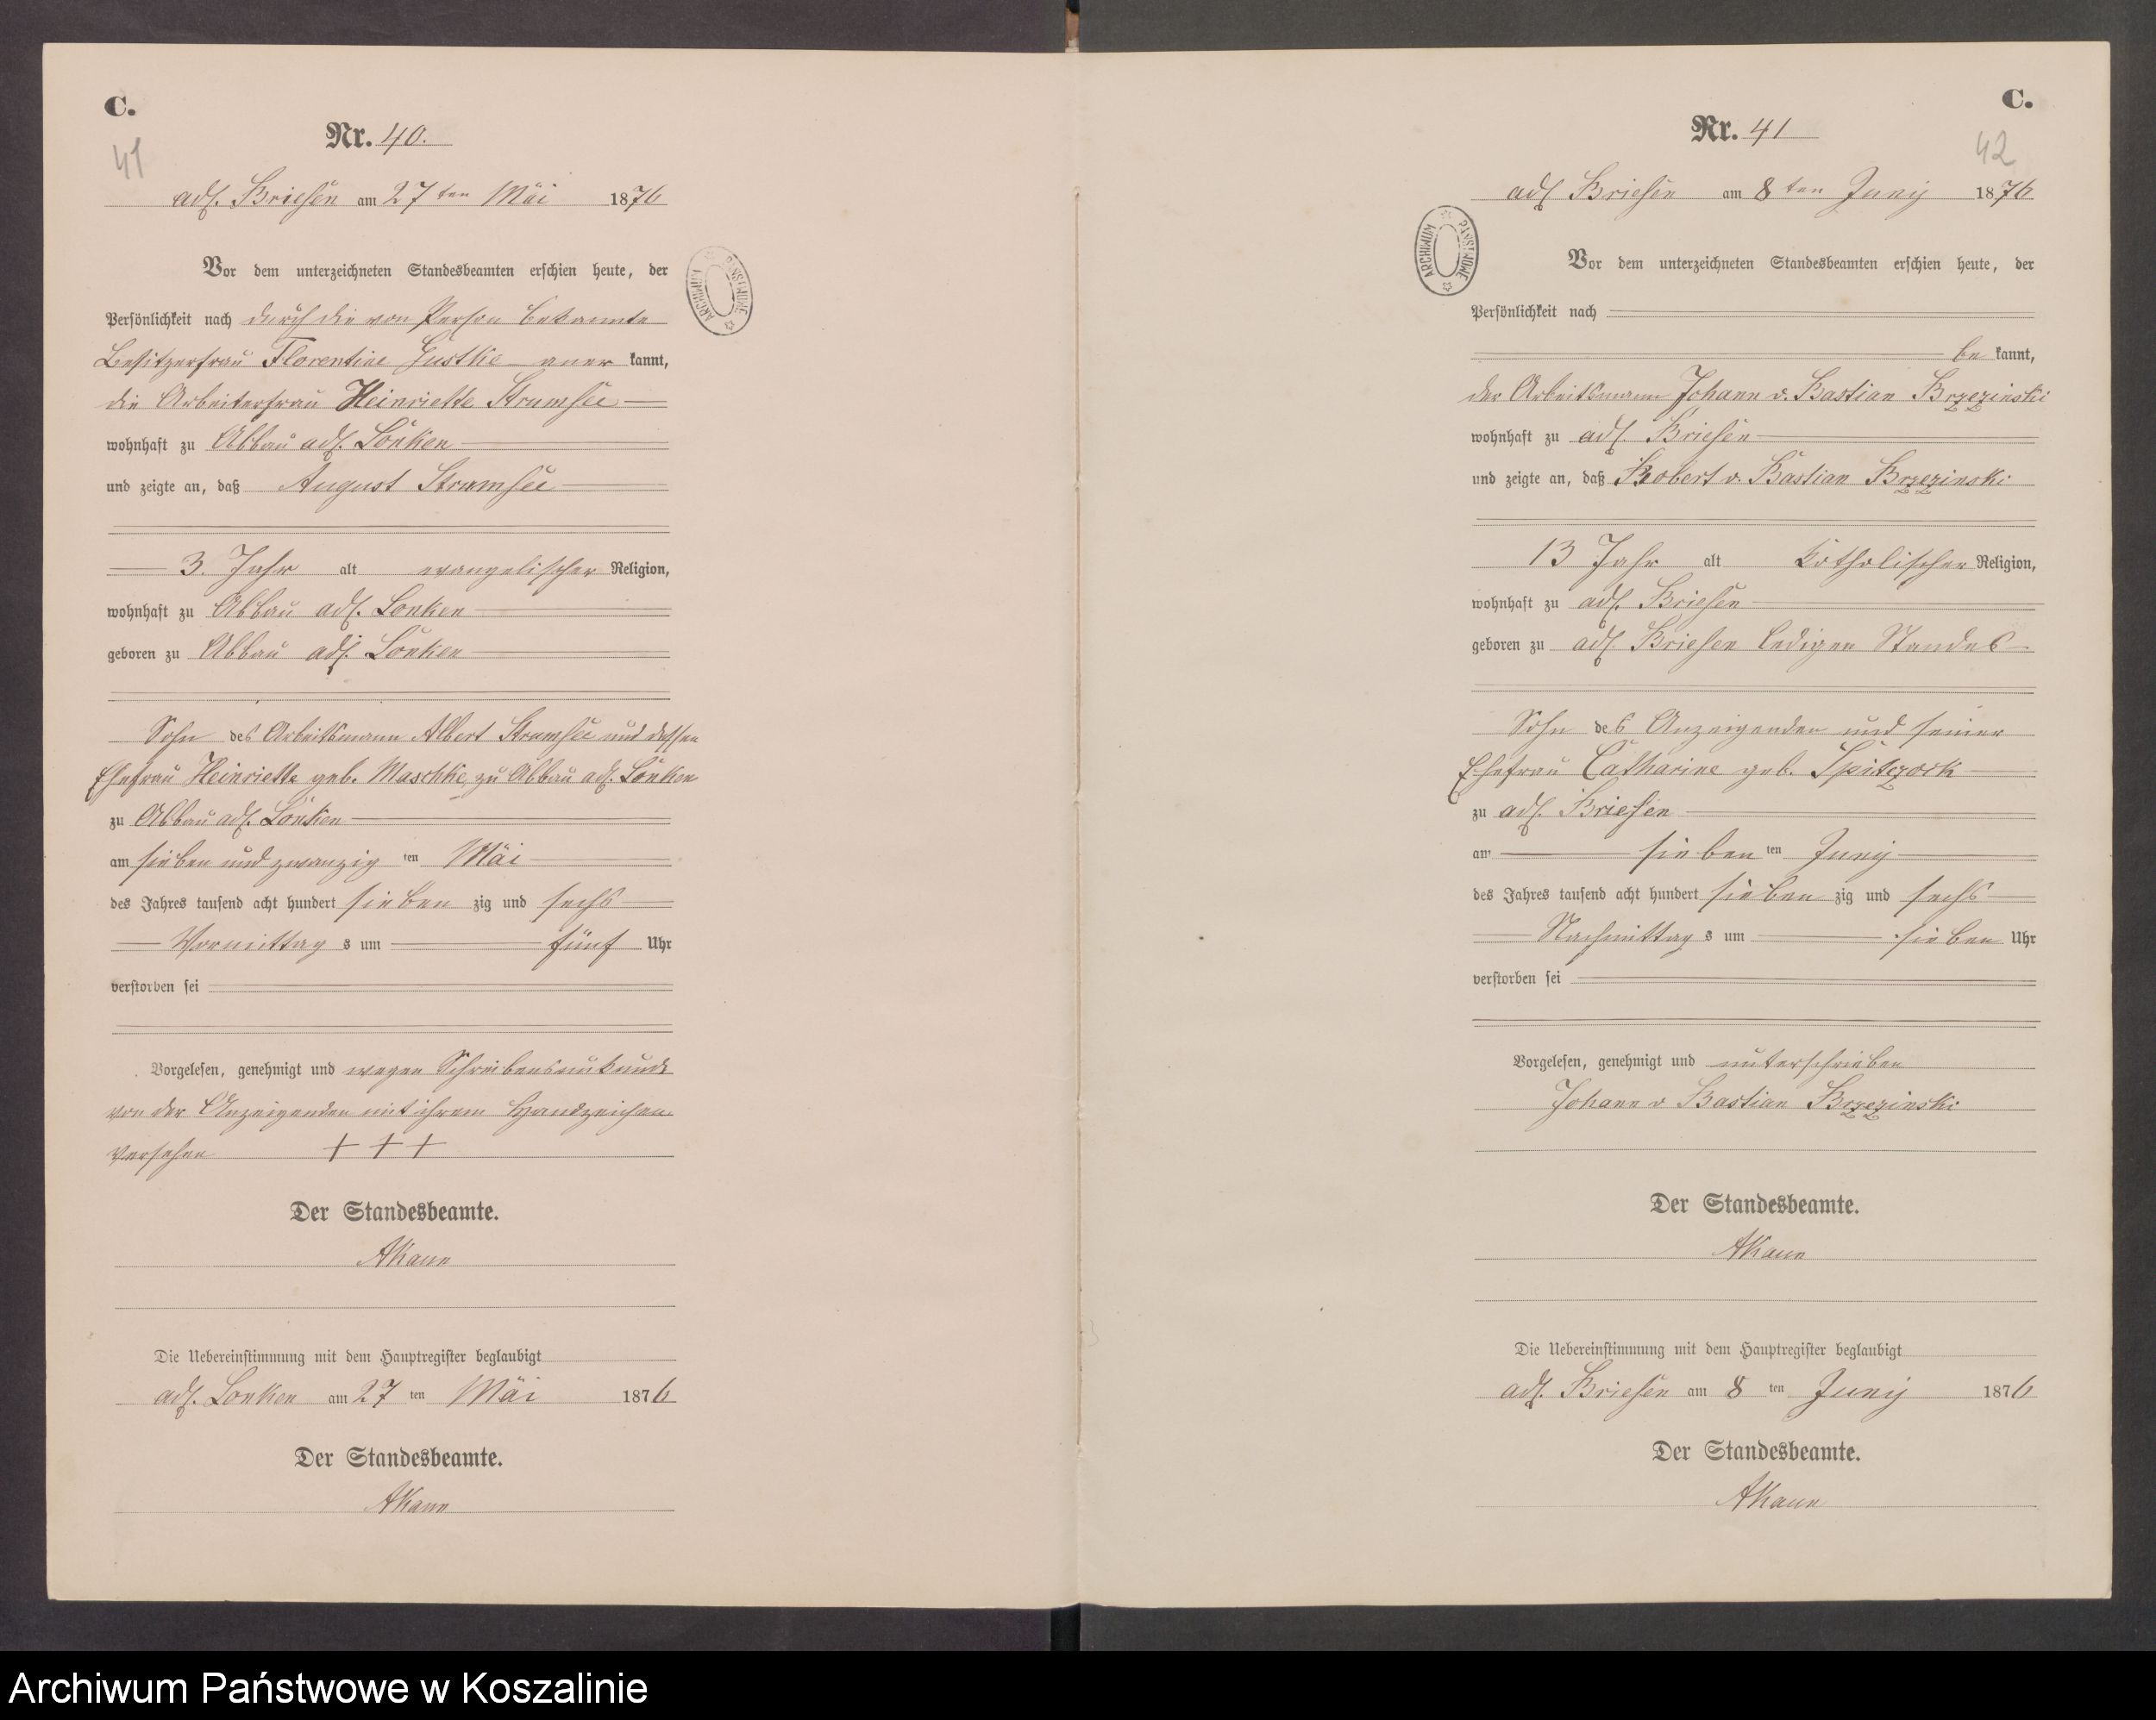 C.
41
Nr. 40.
adl. Briesen am 27ten Mai 1876
Vor dem unterzeichneten Standesbeamten erschien heute, der
Persönlichkeit nach durch die von Person bekannte
Besitzerfrau Florentine Gustke aner kannt,
die Arbeiterfrau Heinriette Strumsee
wohnhaft zu Abbau adl. Lonken
und zeigte an, daß August Strumsee
3. Jahr alt evangelischer Religion,
wohnhaft zu Abbau adl. Lonken
geboren zu Abbau adl. Lonken
Sohn des Arbeitsmann Albert Strumsee und dessen
Ehefrau Heinriette geb. Maschke, zu Abbau adl. Lonken
zu Abbau adl. Lonken
am sieben und zwanzig ten Mai
des Jahres tausend acht hundert sieben zig und sechs
Vormittag s um fünf Uhr
verstorben sei
Vorgelesen, genehmigt und wegen Schreibensunkunde
von der Anzeigenden mit ihrem Handzeichen
versehen + + +
Der Standesbeamte.
AKann
Die Uebereinstimmung mit dem Hauptregister beglaubigt
adl. Lonken am 27 ten Mai 1876
Der Standesbeamte.
AKann
C.
42
Nr. 41
adl Briesen am 8ten Juny 1876
Vor dem unterzeichneten Standesbeamten erschien heute, der
Persönlichkeit nach
be kannt,
der Arbeitsmann Johann v. Bastian Brzezinski
wohnhaft zu adl. Briesen
und zeigte an, daß Robert v. Bastian Brzezinski
13 Jahr alt Katholischer Religion,
wohnhaft zu adl. Briesen
geboren zu adl. Briesen ledigen Standes
Sohn des Anzeigenden und seiner
Ehefrau Catharine geb. Spiczock
zu adl. Briesen
am sieben ten Juny
des Jahres tausend acht hundert sieben zig und sechs
Nachmittag s um sieben Uhr
verstorben sei
Vorgelesen, genehmigt und unterschrieben
Johann v Bastian Brzezinski
Der Standesbeamte.
AKann
Die Uebereinstimmung mit dem Hauptregister beglaubigt
adl. Briesen am 8 ten Juny 1876
Der Standesbeamte.
AKann
ARCHIWUM PAŃSTWOWE
ARCHIWUM PAŃSTWOWE
Archiwum Państwowe w Koszalinie